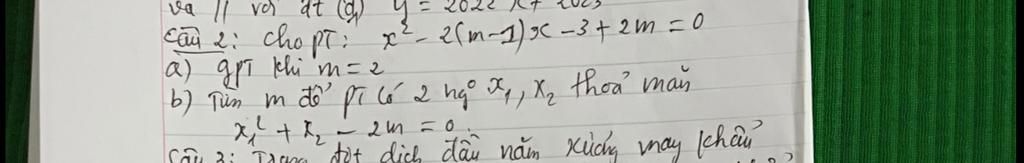 và // với đt (d) y = 2022 x + 2023
Câu 2: Cho PT: x² - 2(m-1)x - 3 + 2m = 0
a) gPT khi m = 2
b) Tìm m để PT có 2 ngº x₁, x₂ thoả mãn
x₁² + x₂ - 2m = 0.
Câu 3: Trong đợt dịch đầu năm xưởng may khẩu